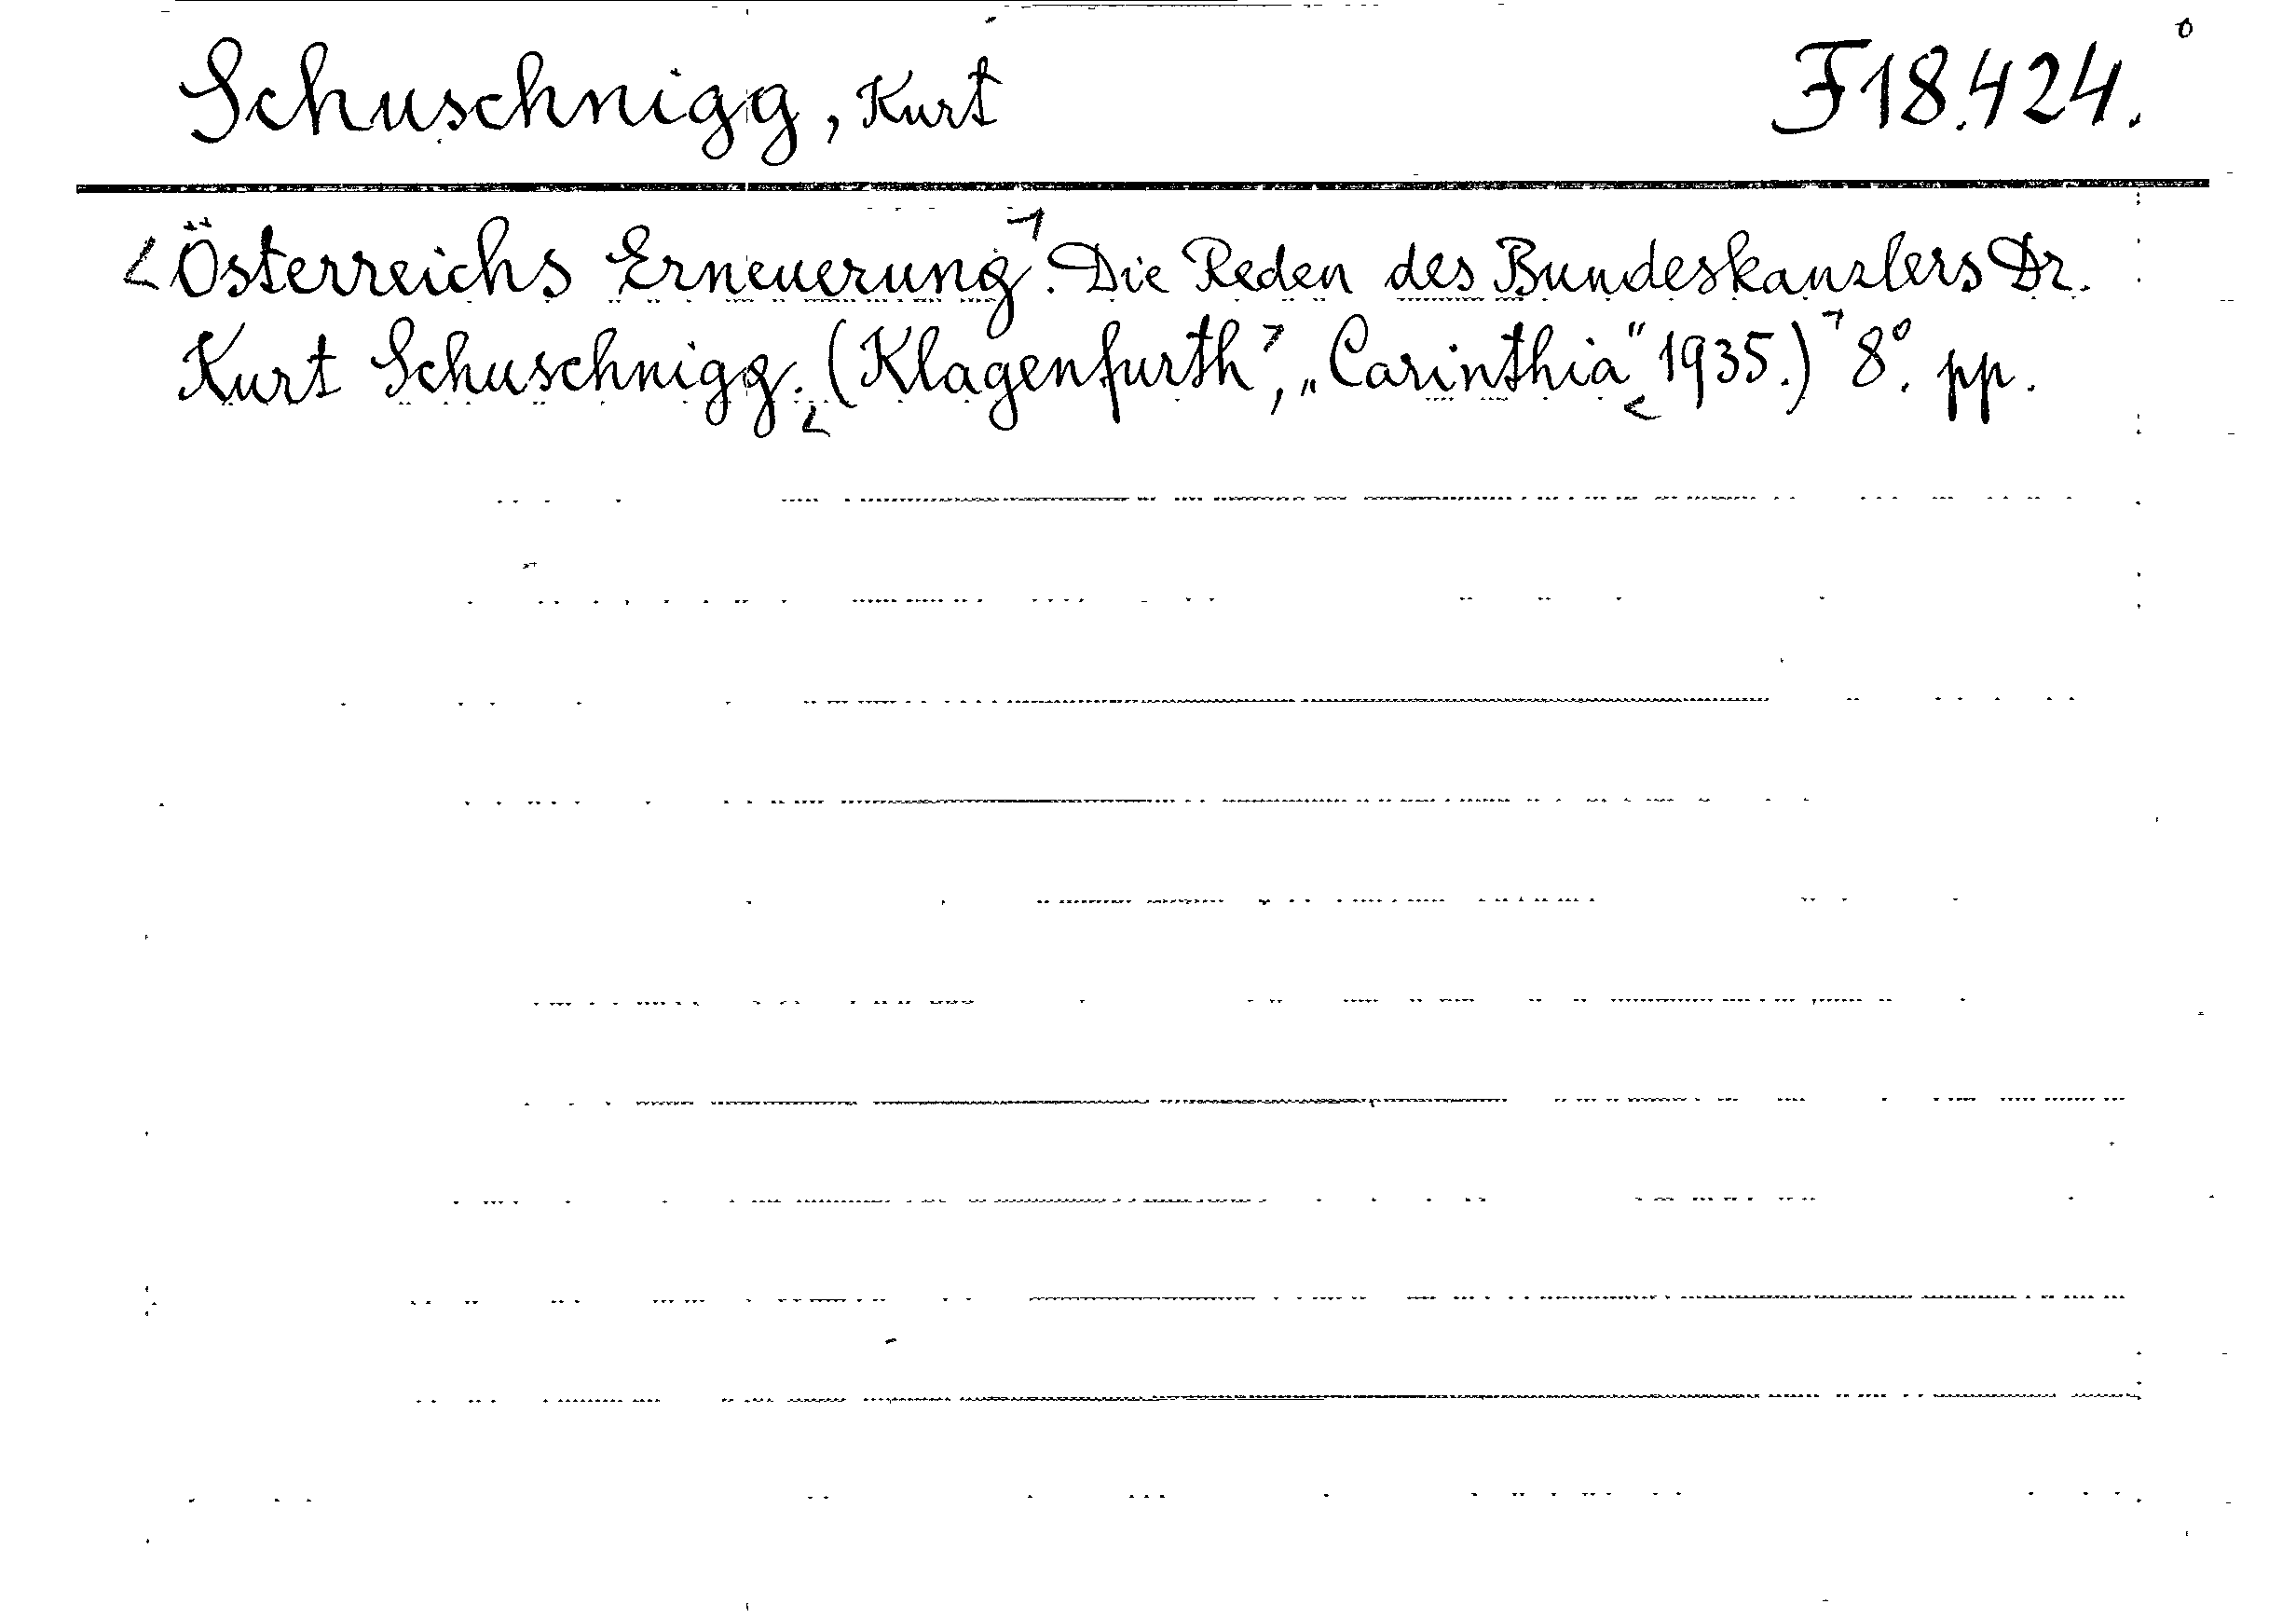 Schuschnigg, Kurt F18.424.
<Österreichs Erneuerung. Die Reden des Bundeskanzlers Dr.
Kurt Schuschnigg. (Klagenfurth, „Carinthia" 1935.) 8°. pp.